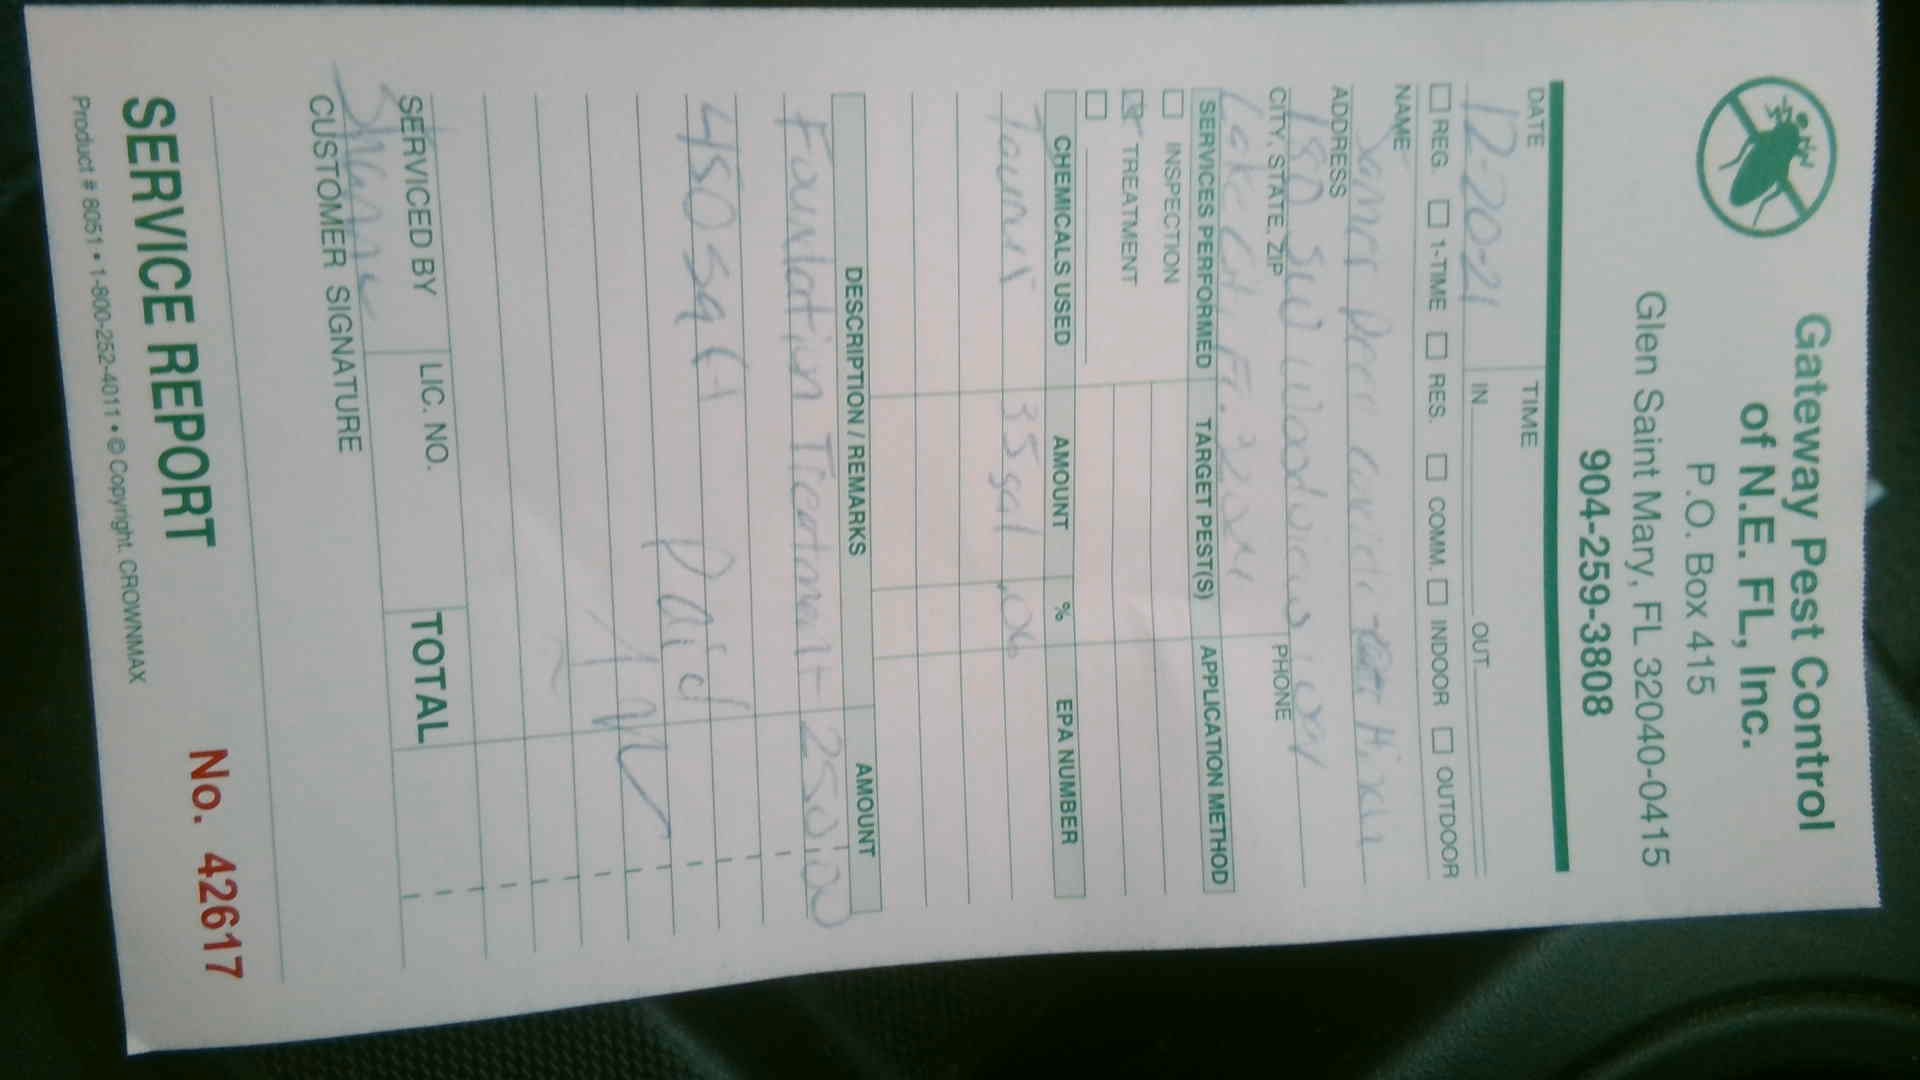 Gateway Pest Control
of N.E. FL, Inc.
P.O. Box 415
Glen Saint Mary, FL 32040-0415
904-259-3808
DATE TIME
12-20-21 IN OUT
REG. 1-TIME RES. COMM. INDOOR OUTDOOR
NAME
James
ADDRESS
180 SW Woodview Way
CITY, STATE, ZIP PHONE
Lake City Fl.
SERVICES PERFORMED TARGET PEST(S) APPLICATION METHOD
INSPECTION
TREATMENT
CHEMICALS USED AMOUNT % EPA NUMBER
35 gal .06
DESCRIPTION / REMARKS AMOUNT
Foundation Treatment 250.00
450 sq ft
Paid
SERVICED BY LIC. NO. TOTAL
CUSTOMER SIGNATURE
SERVICE REPORT No. 42617
Product # 8051 • 1-800-252-4011 • © Copyright. CROWNMAX